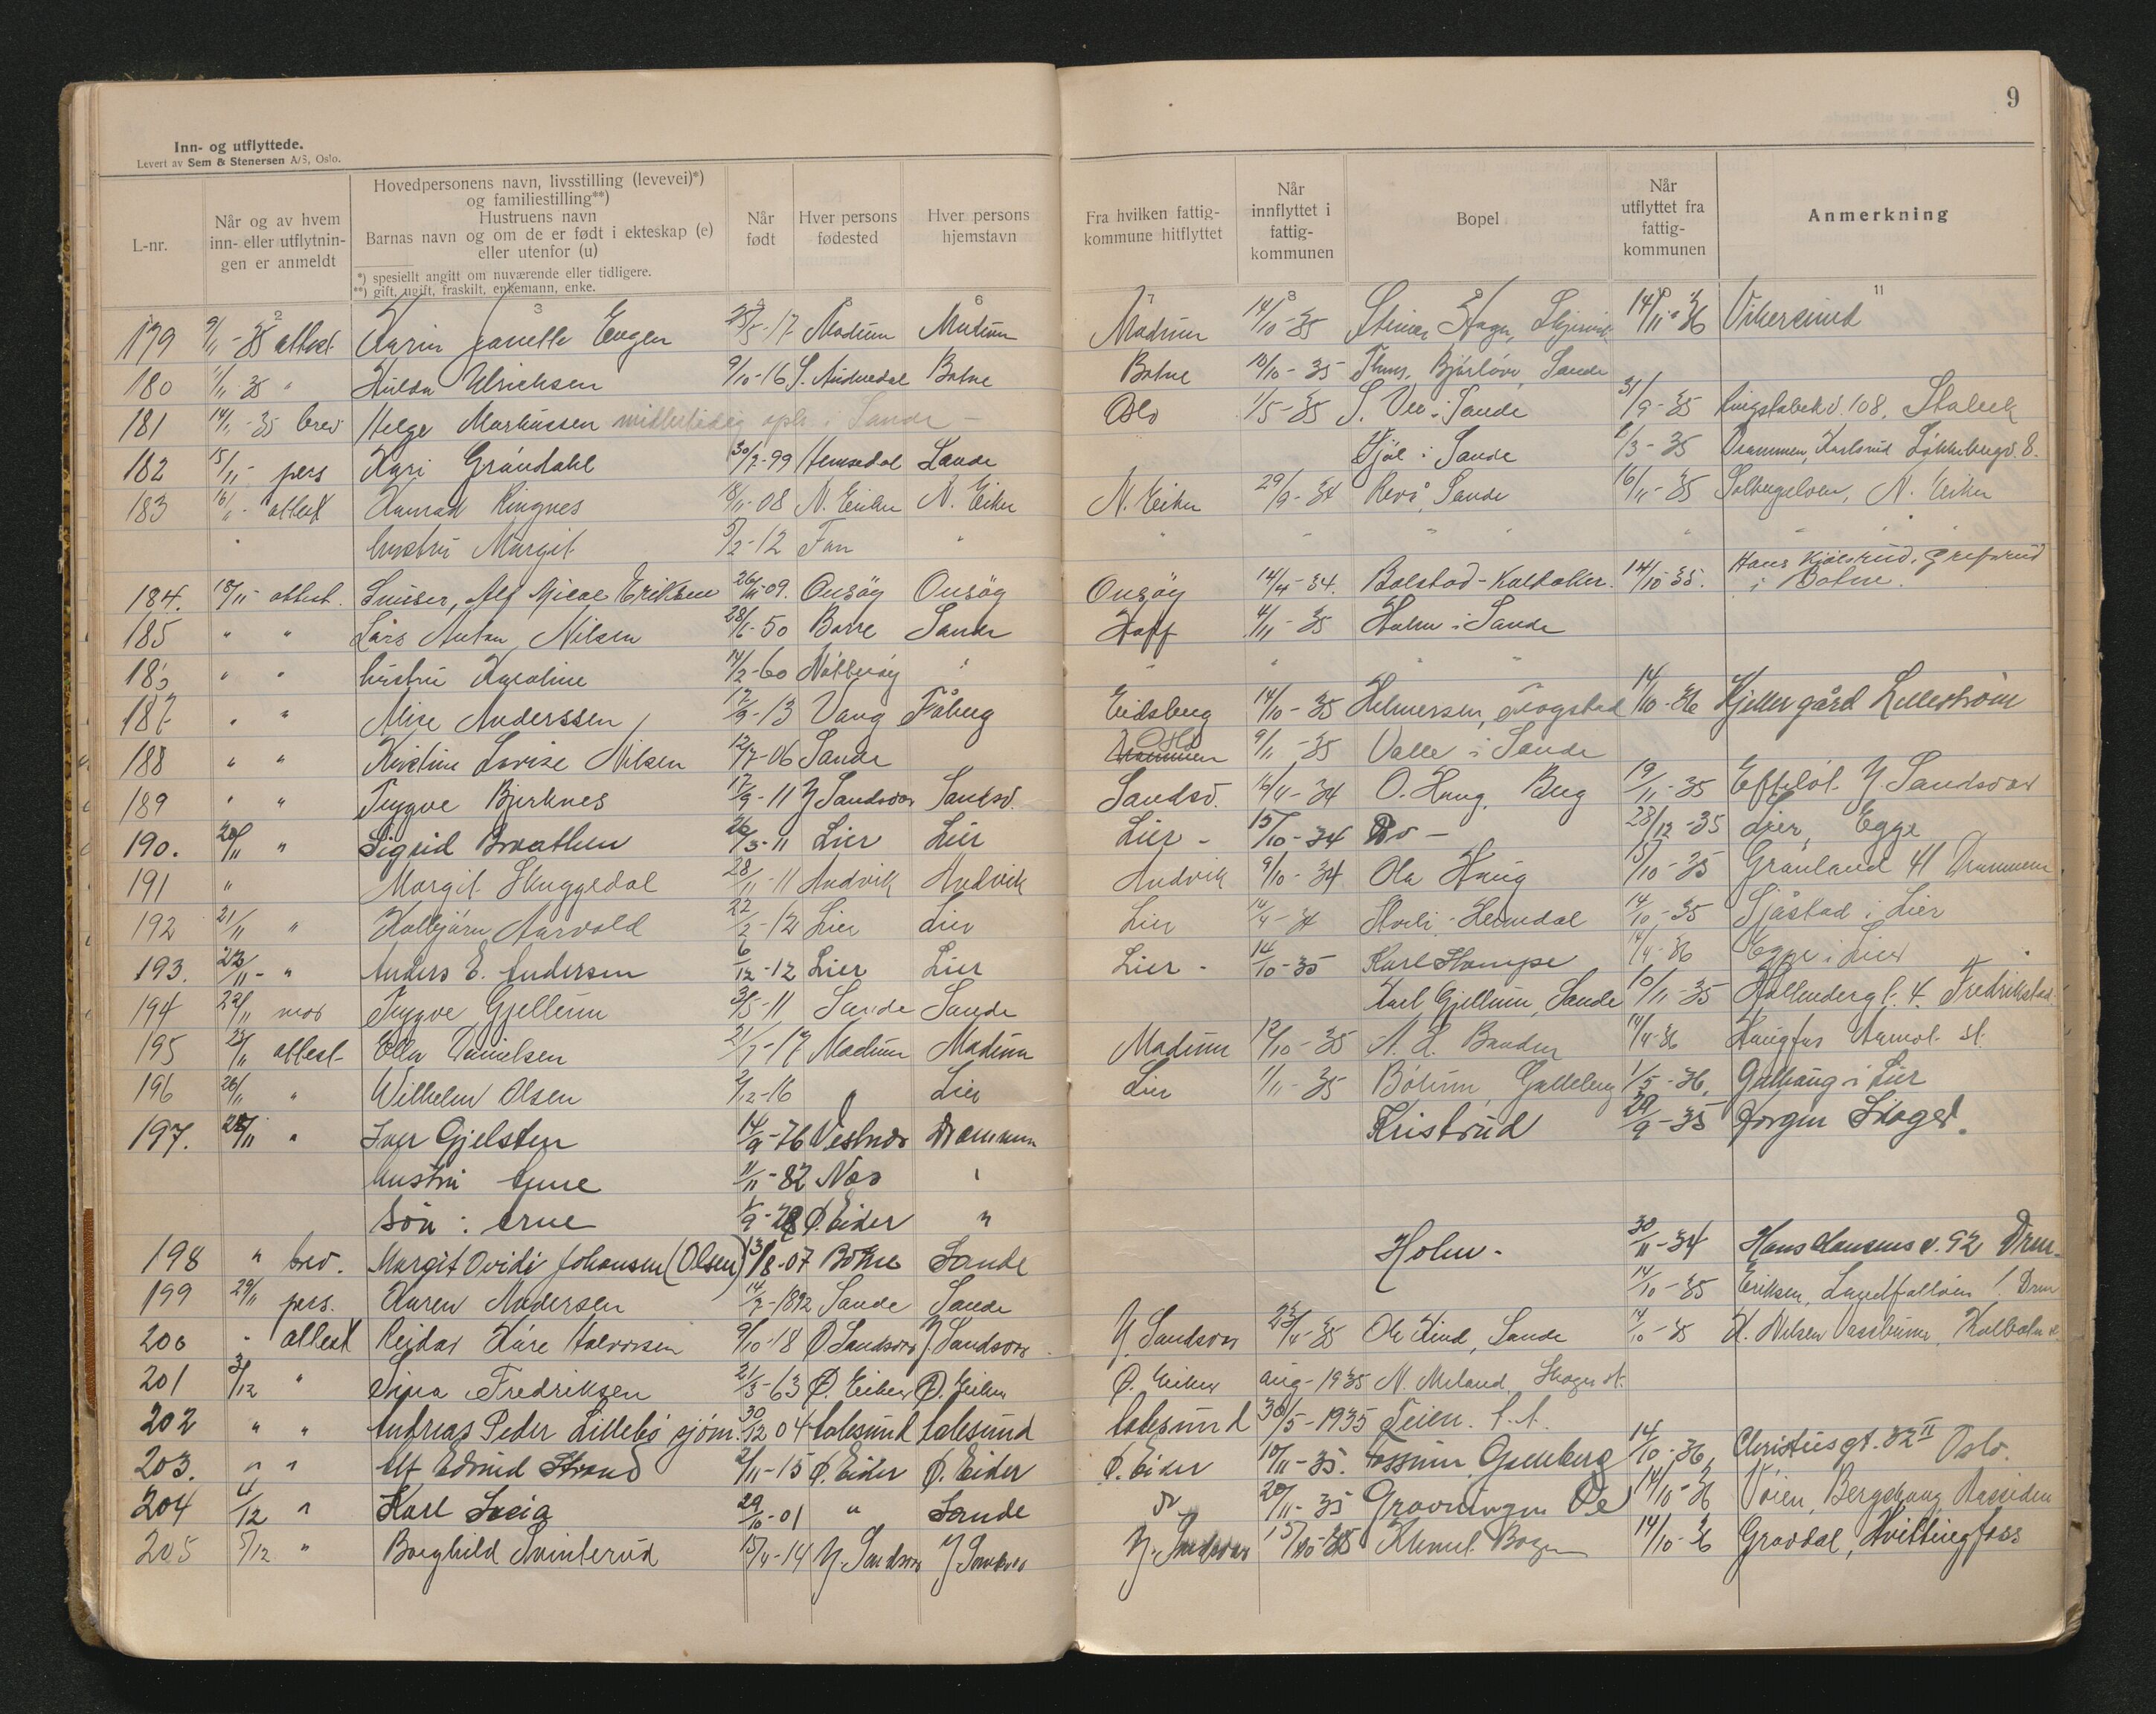 9
Inn- og utflyttede.
Levert av Sem & Stenersen A/S, Oslo.
L-nr.
Når og av hvem
inn- eller utflytnin-
gen er anmeldt
Hovedpersonens navn, livsstilling (levevei)*)
og familiestilling**)
Hustruens navn
Barnas navn og om de er født i ekteskap (e)
eller utenfor (u)
*) spesiellt angitt om nuværende eller tidligere.
**) gift, ugift, fraskilt, enkemann, enke.
Når
født
Hver persons
fødested
Hver persons
hjemstavn
Fra hvilken fattig-
kommune hitflyttet
Når
innflyttet i
fattig-
kommunen
Bopel
Når
utflyttet fra
fattig-
kommunen
Anmerkning
2 3 6 7 8 11
179 9/11-35 attest Karin Janette Engen 25/5-17 Modum Modum Modum 14/10-35 14/11-36 Vikersund
180 1/11 35 " Hulda Ulrichsen 9/10-16 Botne Botne 10/10-35 Sande
181 14/11-35 brev Helge Markussen midlertidig opl. i Sande - Oslo 1/5-35 S. Veo i Sande 31/9-35 108, Stabekk
182 15/11- pers Kari Gröndahl 30/7-99 Hemsedal Sande i Sande 1/3-35 Drammen, 8.
183 16/11- attest Konrad Ringnes 18/11-08 N. Eiker N. Eiker N. Eiker 29/9-34 Revå, Sande 16/11-35 Solbergelven, N. Eiker
" hustru Margit 5/2-12 " " " " " "
184. 18/11- attest. Alf Eriksen 26/11-09. Onsöy Onsöy Onsöy 14/4-34. Bolstad- 14/10 35. Hans i Botne.
185 " " Lars Anton Nilsen 28/6-50 Borre Sande Hoff 4/11-35 Holm i Sande
186 " " hustru Karoline 14/2-60 Nötteröy " " " " "
187 " " Alise Anderssen 17/9-13 Vang Fåberg Eidsberg 14/10-35 Helmersen, Skogstad 14/10-36 Kjeller gård Lilleström
188 " " Kristine Lovise Nilsen 12/7-06 Sande Drammen Oslo 9/11-35 Valle i Sande
189 " " Trygve Bjerknes 17/9-11 Y Sandsvær Sandsv. Sandsv. 12/4-34 O. Haug, Berg 19/11-35 Efteløt Y. Sandsvær
190. 20/11 " Sigrid Braathen 26/3-11 Lier Lier Lier - 15/10-34 Do - 28/12-35 Lier, Egge
191 " Margit Skuggedal 28/11-11 Andvik Andvik Andvik 9/10-34 Ola Haug /10-35 Grønland 41 Drammen
192 21/11 " Kolbjörn Aarvold 22/2-12 Lier Lier Lier 14/4-34 14/10-35 Sjåstad i Lier
193. 23/11- " Anders E. Andersen 6/12-12 Lier Lier Lier - 14/10-35 Karl Hampe 14/4-36 Egge i Lier
194 23/11 mor Trygve Gjellum 3/5-11 Sande Sande Karl Gjellum, Sande 10/11-35 Hollendergt. 4. Fredrikstad
195 23/11 attest Ella Danielsen 21/7-17 Modum Modum Modum 12/10-35 14/4-36 Haugfos st.
196 26/11 " Wilhelm Olsen 2/12-16 " Lier Lier 1/11-35 Bölum, Galleberg 1/5-36, Gulhaug i Lier
197. 28/11 " Iver Gjelsten 14/9-76 Vestnes Drammen Kristrud 29/9-35 Jorgen Skoger.
hustru Anne 11/11-82 Nes "
sön: Arne 1/9-28 Ø. Eiker "
198 " brev. Margit Ovidi Johansen (Olsen) 13/8-07 Botne Sande Holm - 30/11-34 Hans Hansens v. 92 Drm.
199 29/11 pers. Karen Andersen 14/7-1892 Sande Sande 14/10-35 Eriksen, Landfalløien Drm
200 " attest Reidar Kåre Halvorsen 9/10-18 Ø. Sandsvær Y. Sandsvær Y. Sandsvær 23/4-35 Ole Lind, Sande 14/10-35 K. Nilsen
201 3/12 " Sina Fredriksen 21/3-63 Ø. Eiker Ø. Eiker Ø. Eiker aug-1935 N. Meland, Skoger st.
202 " " Andreas Peder Lillebö sjöm. 30/12 04 Aalesund Aalesund Aalesund 30/5-1935 Teien.
203. " " Alf Edvind Strand 2/11-15 Ø. Eiker Ø. Eiker Ø. Eiker 10/11-35. Fossum, Galleberg 14/10-36, Christiesgt. 32 II Oslo.
204 4/12 " Karl 29/10-01 " Sande 20/11-35 14/10-36 Vöien, Berghaug, Aassiden
205 5/12 " Borghild Svinterud 15/4-14 Y. Sandsvær Y Sandsvær Y. Sandsvær 15/10-35 14/10-36 Gravdal, Hvittingfoss